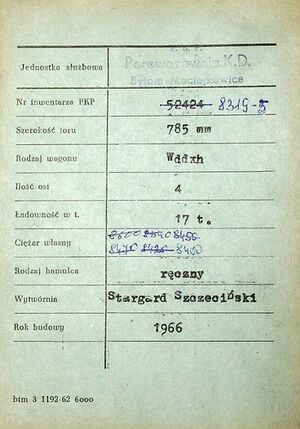 P.K.P.
Jednostka służbowa Parowozownia K.D.
Bytom Maciejkowice
Nr inwentarza PKP 52424 8319-5
Szerokość toru 785 mm
Rodzaj wagonu Wddxh
Ilość osi 4
Ładowność w t. 17 t.
8500 8540 8450
Ciężar własny 8470 8420 8400
Rodzaj hamulca ręczny
Wytwórnia Stargard Szczeciński
Rok budowy 1966
btm 3 1192-62 6000